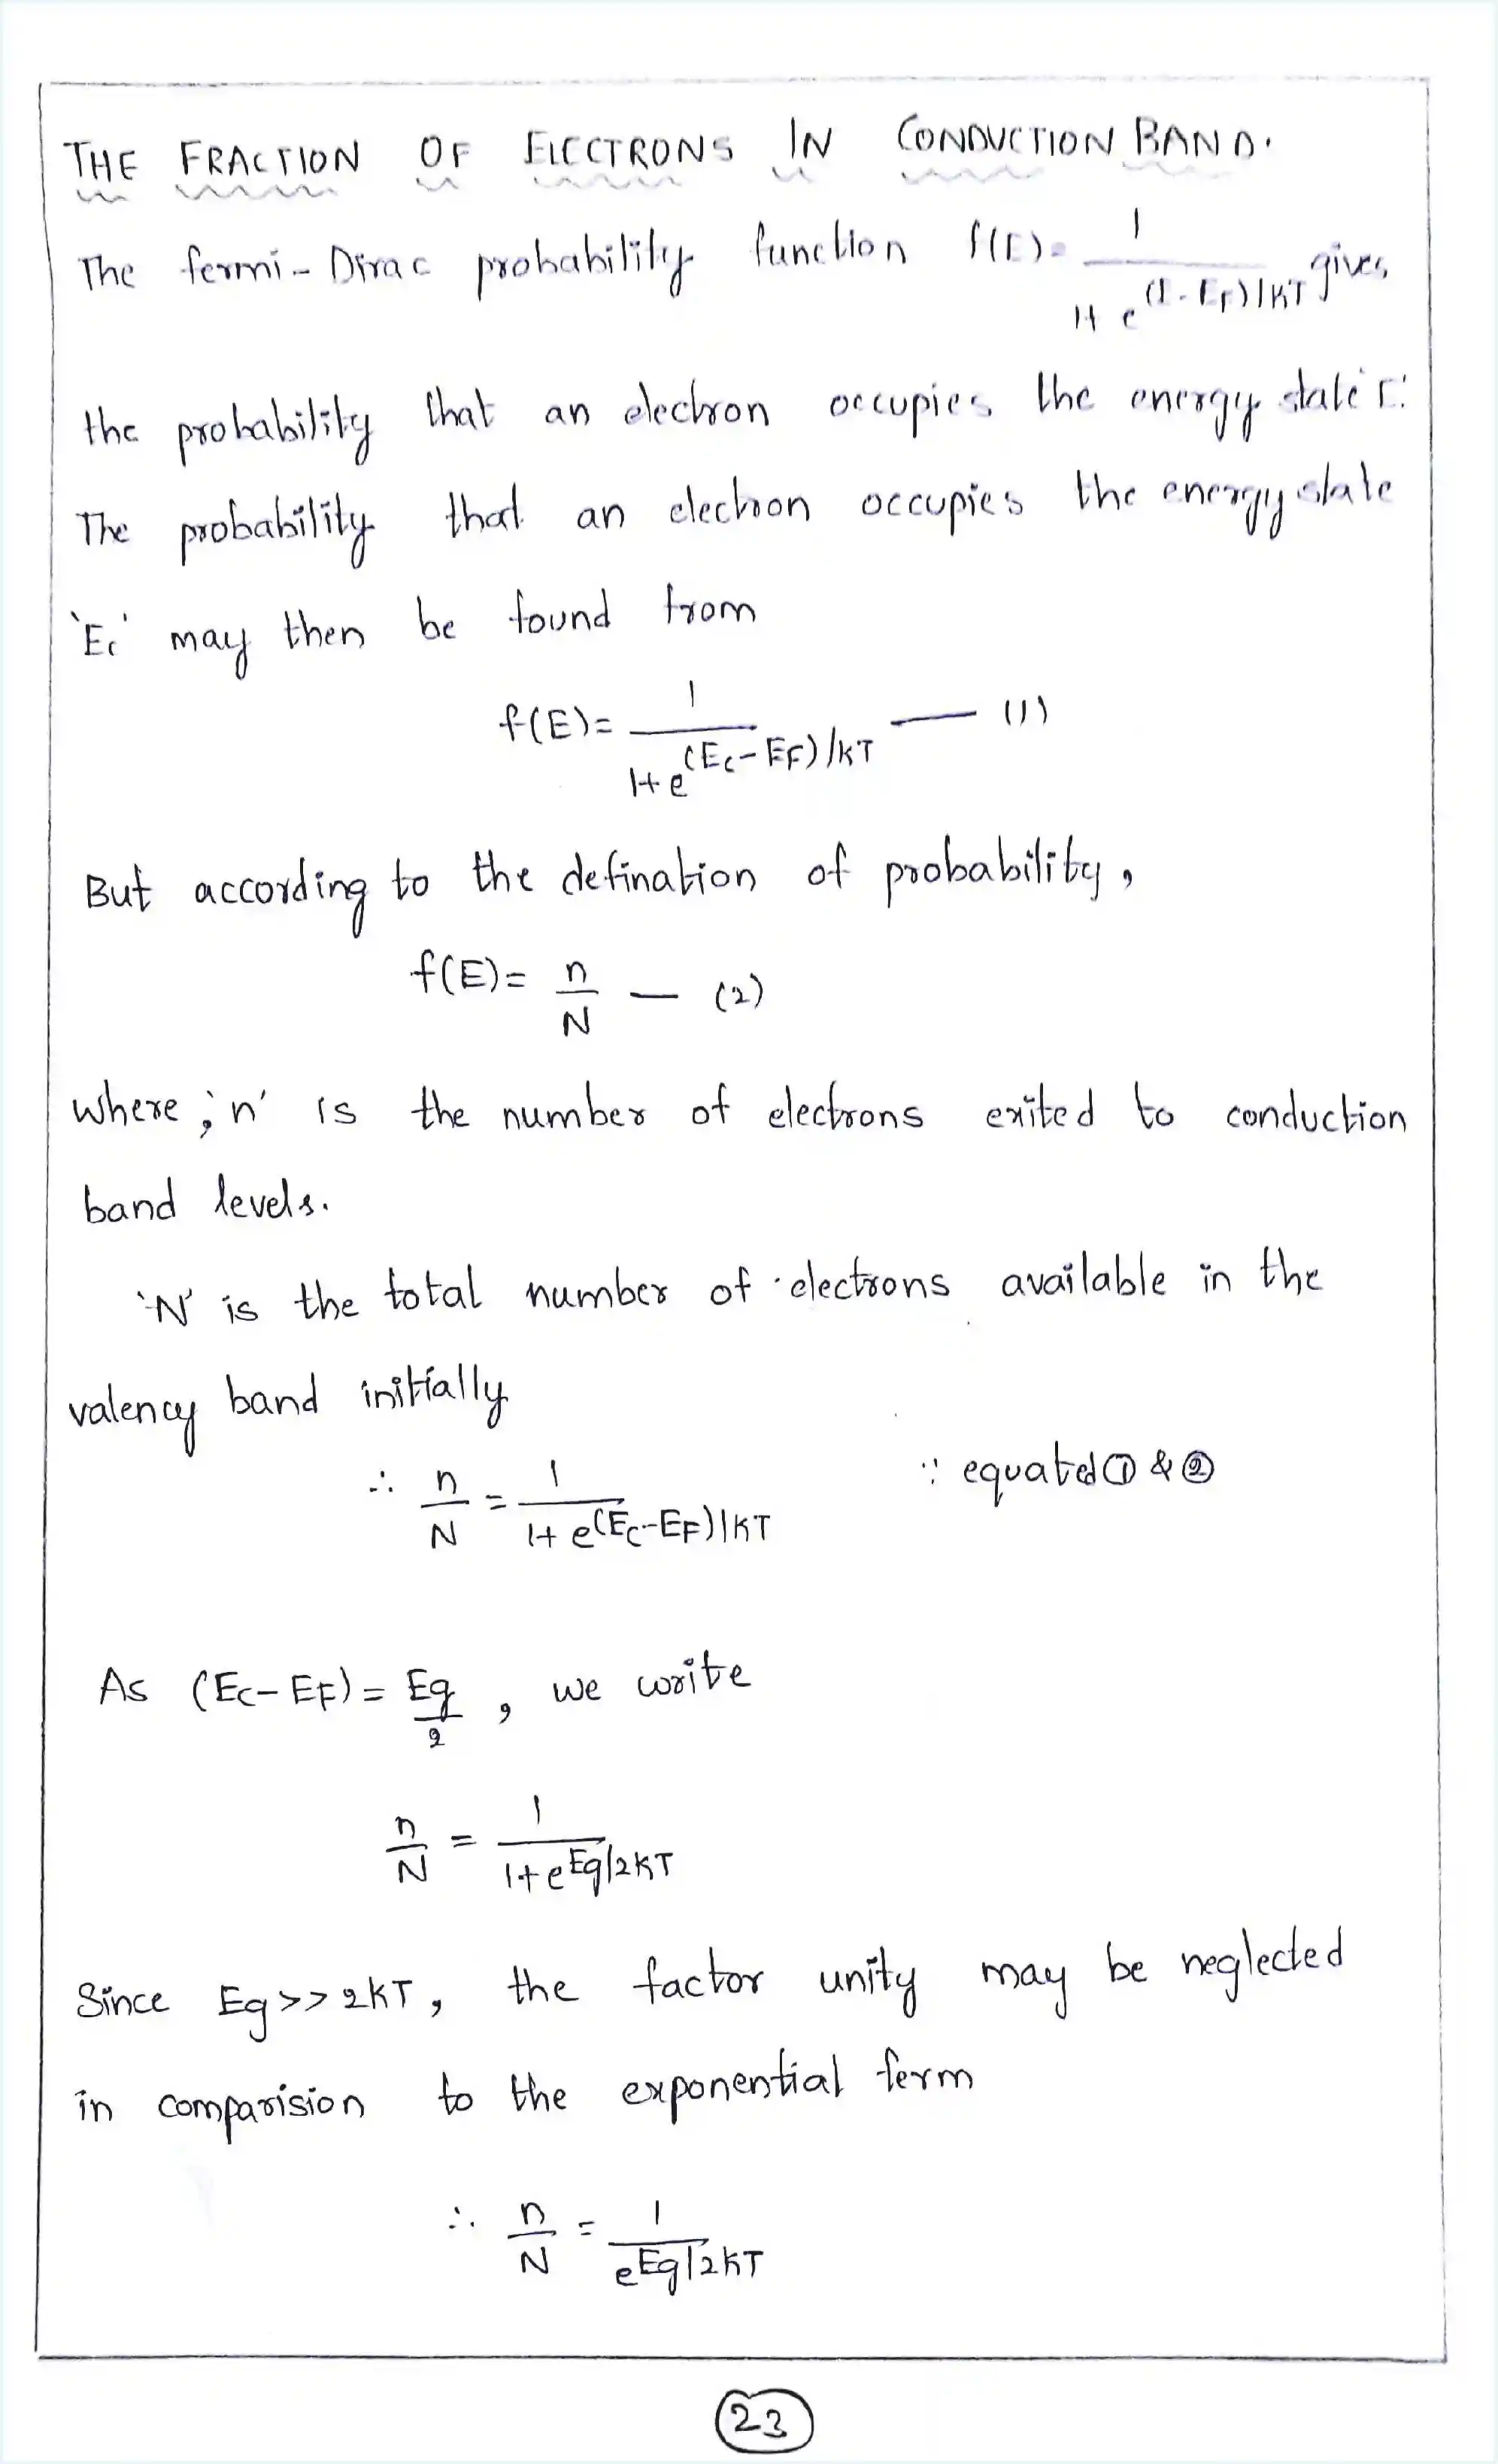 THE FRACTION OF ELECTRONS IN CONDUCTION BAND.
The fermi-Dirac probability function f(E)= 1/(1+e^(E-EF)/KT) gives
the probability that an electron occupies the energy state 'E'.
The probability that an electron occupies the energy state
'Ec' may then be found from
f(E)= 1/(1+e^(Ec-EF)/KT) — (1)
But according to the defination of probability,
f(E)= n/N — (2)
where, 'n' is the number of electrons exited to conduction
band levels.
'N' is the total number of electrons available in the
valency band initially
∴ n/N = 1/(1+e^(Ec-EF)/KT) ∵ equated ① & ②
As (Ec-EF)= Eg/2, we write
n/N = 1/(1+e^Eg/2KT)
Since Eg>>2KT, the factor unity may be neglected
in comparision to the exponential term
∴ n/N = 1/e^Eg/2KT
23